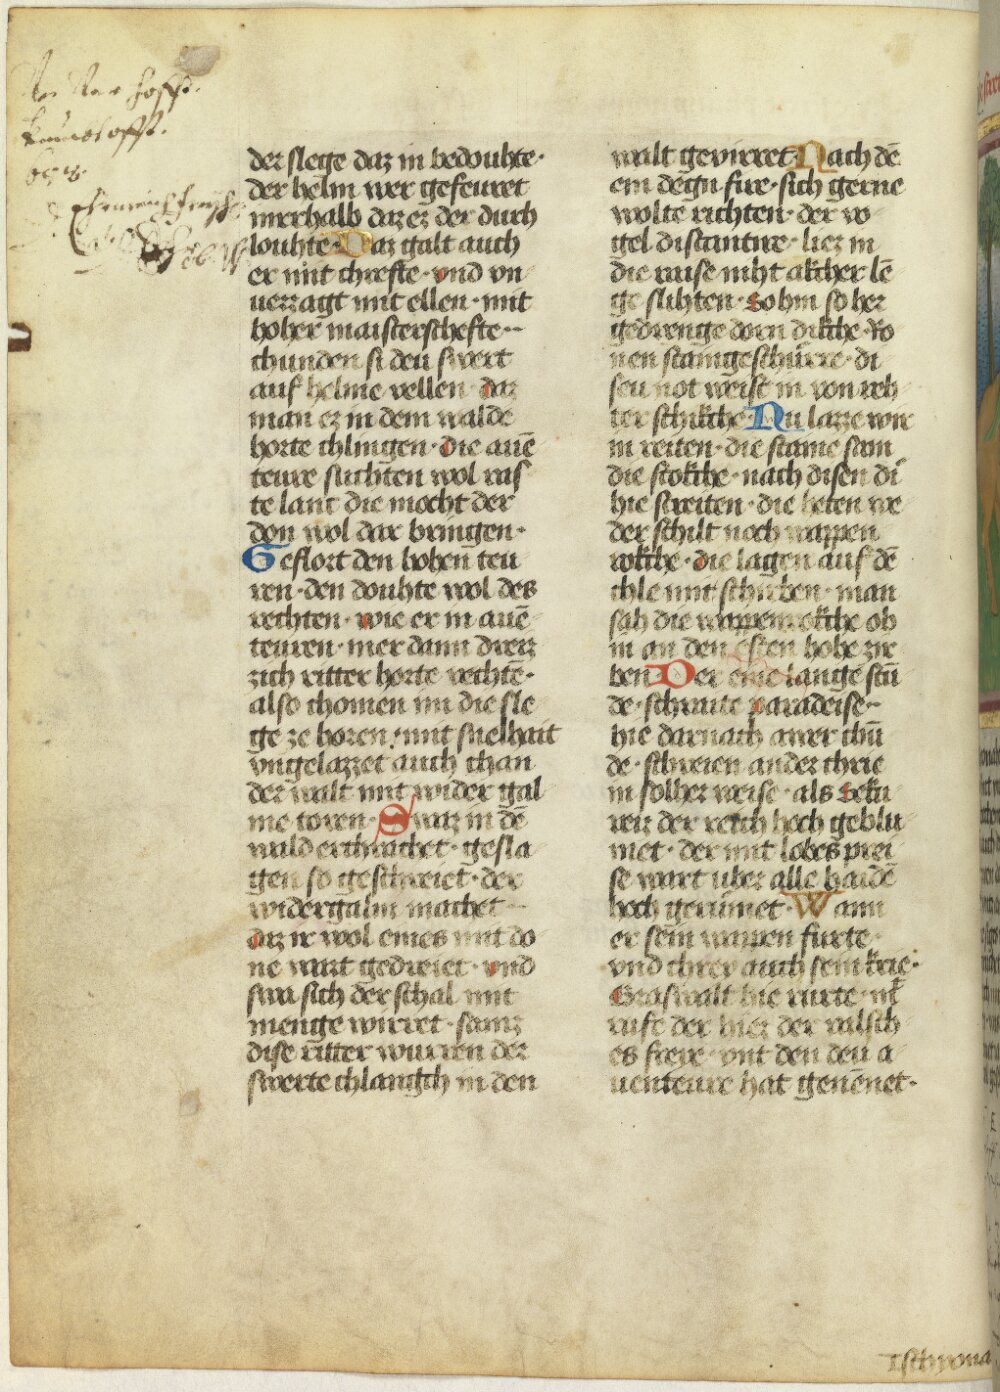 der slege daz in bedouhte·
der helm wer gefeuret
inerhalb daz ez der durch
louhte· Daz galt auch
er mit chrefte· vnd vn
uerzagt mit ellen· mit
hoher maisterschefte··
chunden si deu swert
auf helme vellen· daz
man ez in dem walde
horte chlingen· die auē
teure suchten wol ras
te lant die mocht der
don wol dar bringen·
Geflort den hohen teu
ren· den douhte wol des
rechten· wie er in auē
teuren· mer dann dreiz
zich ritter horte vechtē·
also chomen im die sle
ge ze horen· mit snelhait
vngelazzet auch chan
der walt mit wider gal
me toren· Swaz in dē
wald erchrachet· gesla
gen so geschreiet· der
widergalm machet··
daz ir wol eines mit do
ne wart gedreiet· vnd
swa sich der schal mit
menge wirret· samz
dise ritter wurren der
swerte chlangch in den
walt gevirret· Nach dē
ein degn fire· sich gerne
wolte richten· der vo
gel discantire· liez in
die raise niht akcher lē
ge slihten· sohin so her
gedrenge dorn dikche· Ro
nen stamgeschürre· di
seu not weist in von reh
ter schikche· Nu lazze wir
in reiten· die stame sam
die stokche· nach disen di
hie streiten· die heten we
der schilt noch wappen
rokche· die lagen auf dē
chle mit schirben· man
sah die wappenrokche ob
in an den esten hohe zir
ben· Der eine lange stū
de· schraite paradeise··
hie darnach awer chū
de· schreien ander chrie
in solher weise· als Seku
reiz der reich hoch geblu
met· der mit lobes prei
se wart uber alle haidē
hoch gerümet· Wann
er sein wappen furte·
vnd chrey auch sein krie·
Graswalt hie rurte· mit
rufe der hiez der valsch
es freye· vnt den deu a
uenteure hat genēnet·